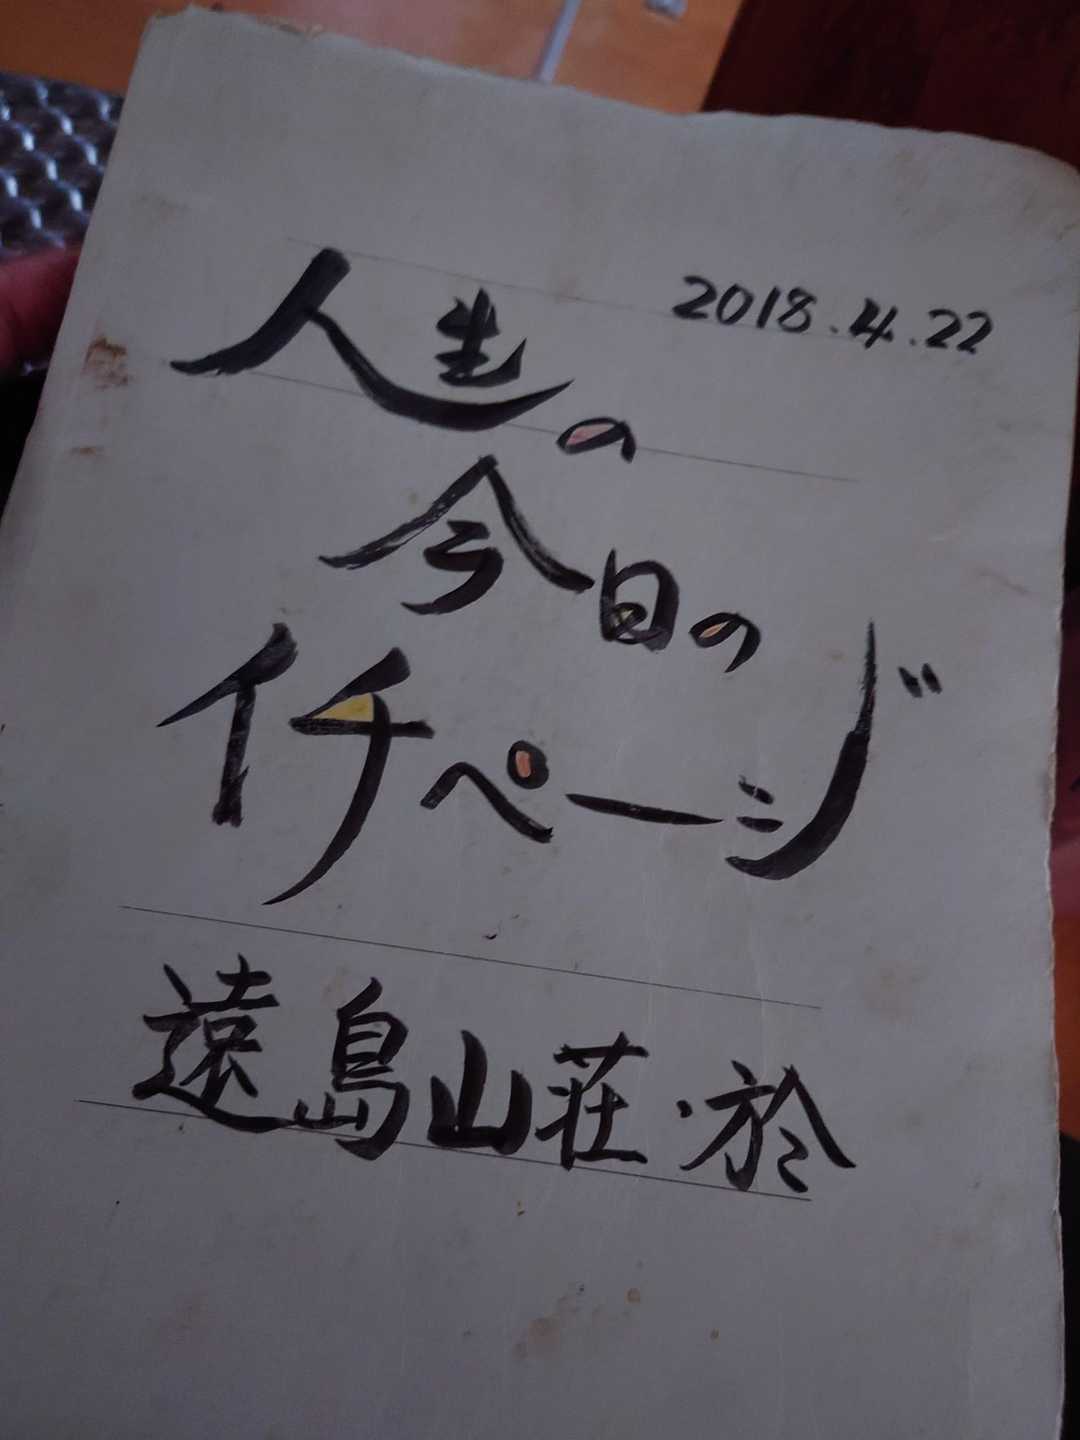 2018.4.22
人生の
今日の
イチページ
遠島山荘・於